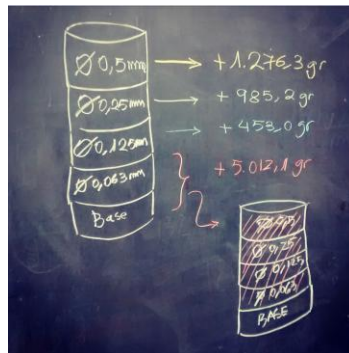 Ø 0,5mm → + 1.276,3 gr
Ø 0,25mm → + 985,2 gr
Ø 0,125mm → + 453,0 gr
Ø 0,063mm + 5.012,1 gr
Base
Ø 0,5
Ø 0,25
Ø 0,125
Ø 0,063
BASE